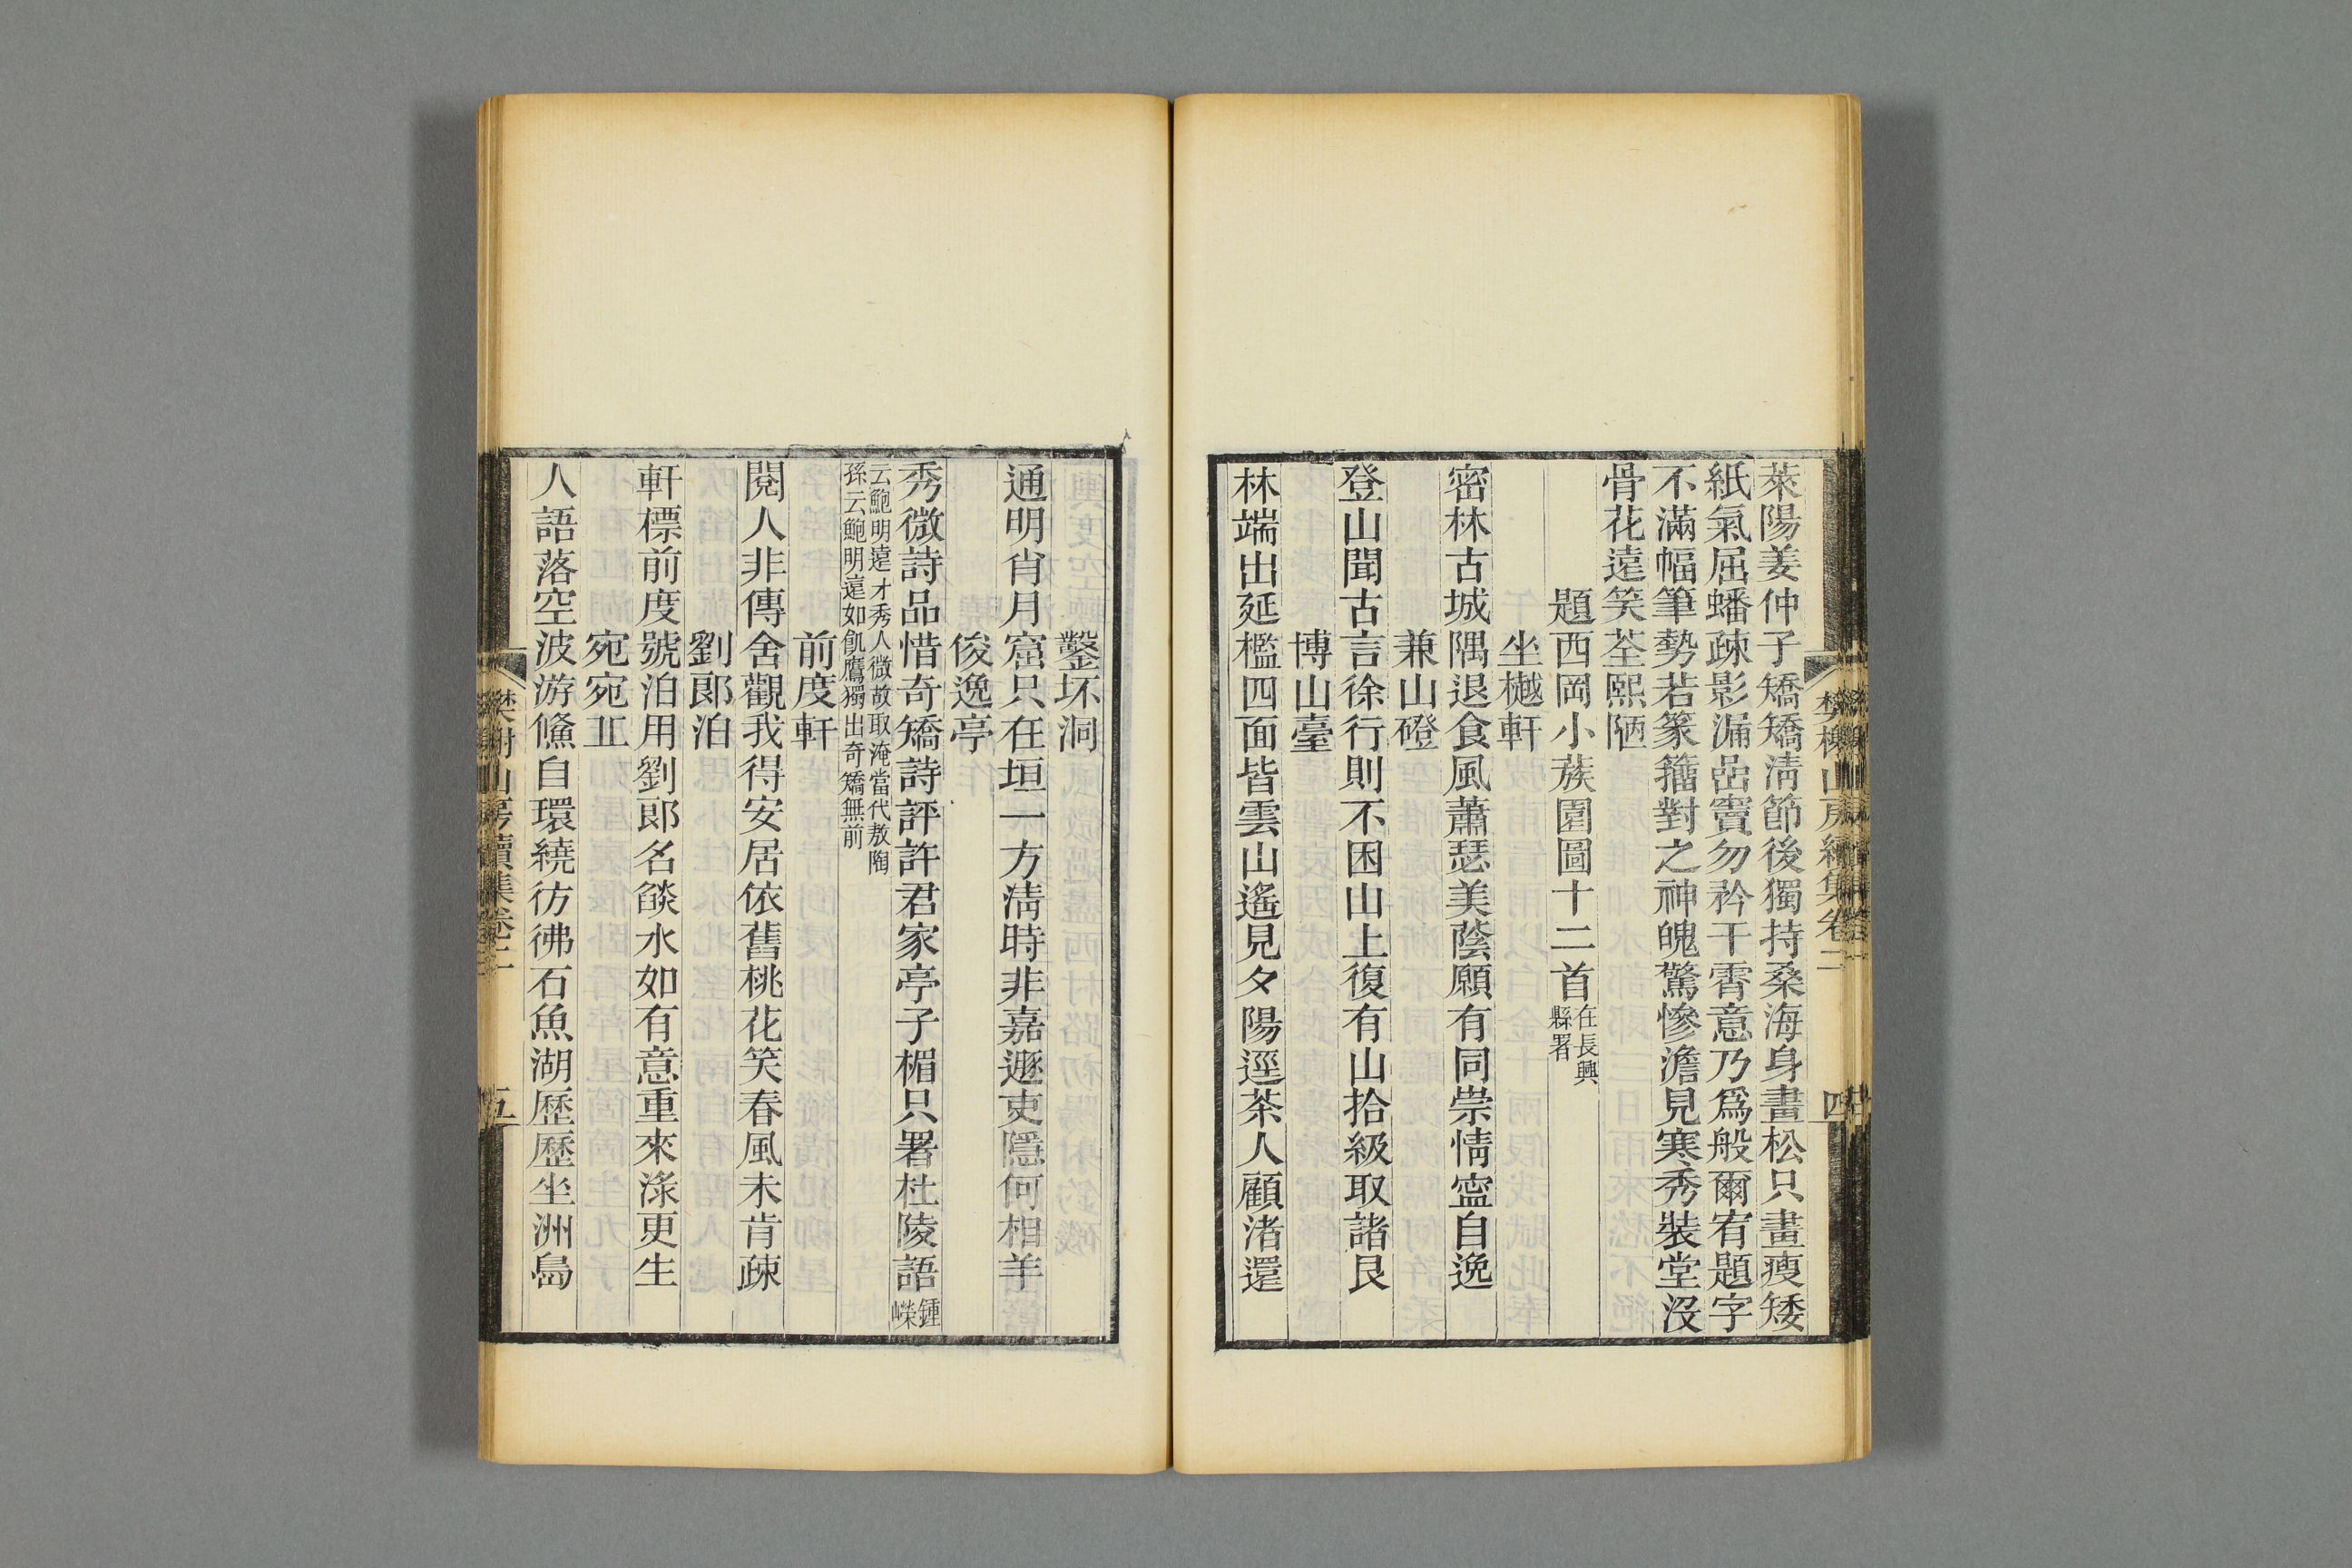 樊榭山房續集卷二
四
萊陽姜仲子矯矯淸節後獨持桑海身畫松只畫瘦矮
紙氣屈蟠疎影漏嵒竇勿矜干霄意乃爲般爾宥題字
不滿幅筆勢若篆籒對之神魄驚慘澹見寒秀裝堂沒
骨花遠笑荃熙陋
題西岡小蔟園圖十二首在長興
縣署
坐樾軒
密林古城隅退食風蕭瑟美蔭願有同崇情寍自逸
兼山磴
登山聞古言徐行則不困山上復有山拾級取諸艮
博山臺
林端出延檻四面皆雲山遙見夕陽逕茶人顧渚還
鑿坏洞
通明肖月窟只在垣一方淸時非嘉遯吏隱何相羊
俊逸亭
秀微詩品惜奇矯詩評許君家亭子楣只署杜陵語鍾
嶸
云鮑明遠才秀人微故取淹當代敖陶
孫云鮑明遠如飢鷹獨出奇矯無前
前度軒
閱人非傳舍觀我得安居依舊桃花笑春風未肯疎
劉郞泊
軒標前度號泊用劉郞名燄水如有意重來淥更生
宛宛丠
人語落空波游鯈自環繞彷彿石魚湖歷歷坐洲島
樊榭山房續集卷二
五